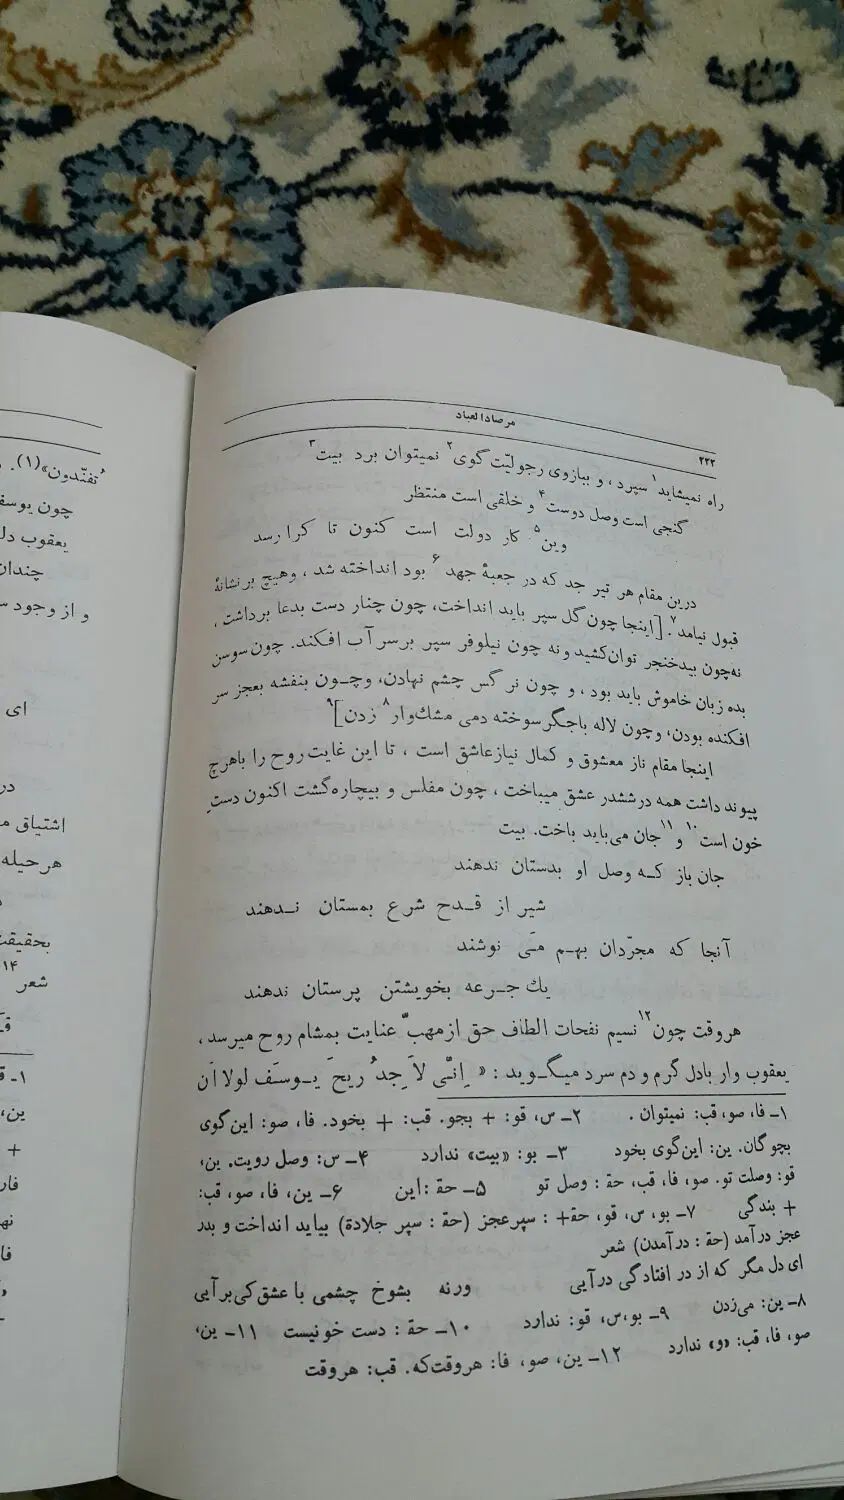 مرصادالعباد
۲۲۲
راه نمیشاید۱ سپرد، و ببازوی رجولیّت گوی۲ نمیتوان برد بیت۳
گنجی است وصل دوست۴ و خلقی است منتظر
وین۵ کار دولت است کنون تا کرا رسد
درین مقام هر تیر جد که در جعبهٔ جهد۶ بود انداخته شد، وهیچ بر نشانهٔ
قبول نیامد۷. [اینجا چون گل سپر باید انداخت، چون چنار دست بدعا برداشت،
نه‌چون بیدخنجر توان‌کشید ونه چون نیلوفر سپر برسر آب افکند. چون سوسن
بده زبان خاموش باید بود، و چون نرگس چشم نهادن، وچون بنفشه بعجز سر
افکنده بودن، وچون لاله باجگر سوخته دمی مشك‌وار۸ زدن]۹
اینجا مقام ناز معشوق و کمال نیازعاشق است، تا این غایت روح را باهرچ
پیوند داشت همه درششدر عشق میباخت، چون مفلس و بیچاره‌گشت اکنون دستِ
خون است۱۰ و۱۱ جان می‌باید باخت. بیت
جان باز کـه وصل او بدستان ندهند
شیر از قـدح شرع بمستان نـدهند
آنجا که مجرّدان بهـم مَی نوشند
یك جـرعه بخویشتن پرستان ندهند
هروقت چون۱۲ نسیم نفحات الطاف حق ازمهبّ عنایت بمشام روح میرسد،
یعقوب وار بادل گرم و دم سرد میگـوید: «اِنّی لَاَجِدُ ریحَ یـوسَفَ لولا اَن
۱ـ فا، صو، قب: نمیتوان. ۲ـ س، قو: + بجو. قب: + بخود. فا، صو: این‌گوی
بچوگان. ین: این‌گوی بخود ۳ـ بو: «بیت» ندارد ۴ـ س: وصل رویت. ین،
قو: وصلت تو. صو، فا، قب، حق: وصل تو ۵ـ حق: این ۶ـ ین، فا، صو، قب:
+ بندگی ۷ـ بو، س، قو، حق+: سپرعجز (حق: سپر جلادة) بیاید انداخت و بدر
عجز درآمد (حق: درآمدن) شعر
ای دل مگر که از در افتادگی درآیی ورنه بشوخ چشمی با عشق‌کی برآیی
۸ـ ین: می‌زدن ۹ـ بو،س، قو: ندارد ۱۰ـ حق: دست خونیست ۱۱ـ ین،
صو، فا، قب: «و» ندارد ۱۲ـ ین، صو، فا: هروقت‌که. قب: هروقت
تُفنّدون»(۱).
چون یوسف
یعقوب
چندان
و از وجود
ای
در
اشتیاق
هرحیله
بحقیقت
۱۴
شعر
۱ـ
ین،
+
فا